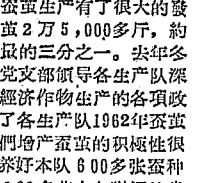 蚕茧生产有了很大的發
茧2万5,000多斤，約
最的三分之一。去年冬
党支部領导各生产队深
經济作物生产的各項政
了各生产队1962年蚕茧
們增产蚕茧的积极性很
养好本队600多张蚕种